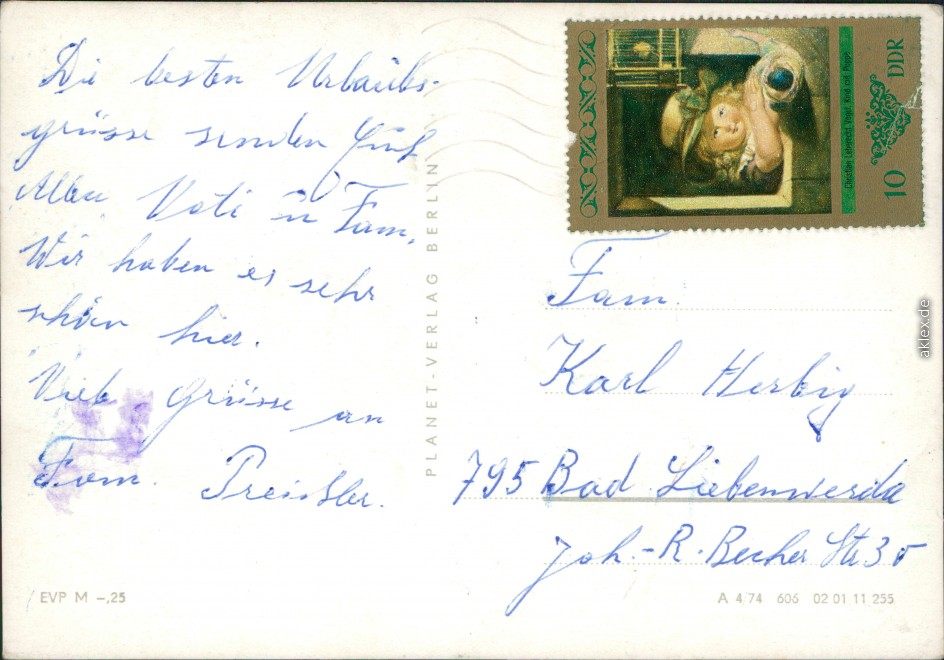 Die besten Urlaubs-
grüsse senden Euch
Allen Vati u Fam.
Wir haben es sehr
schön hier.
Viele Grüsse an
Fam. Preissler.
EVP M –,25
PLANET-VERLAG BERLIN
Christian Leberecht Vogel, Kind mit Puppe
10 DDR
Fam.
Karl Herbig
795 Bad Liebenwerda
Joh.-R. Becher Str 35
A 4/74 606 02 01 11 255
aklex.de